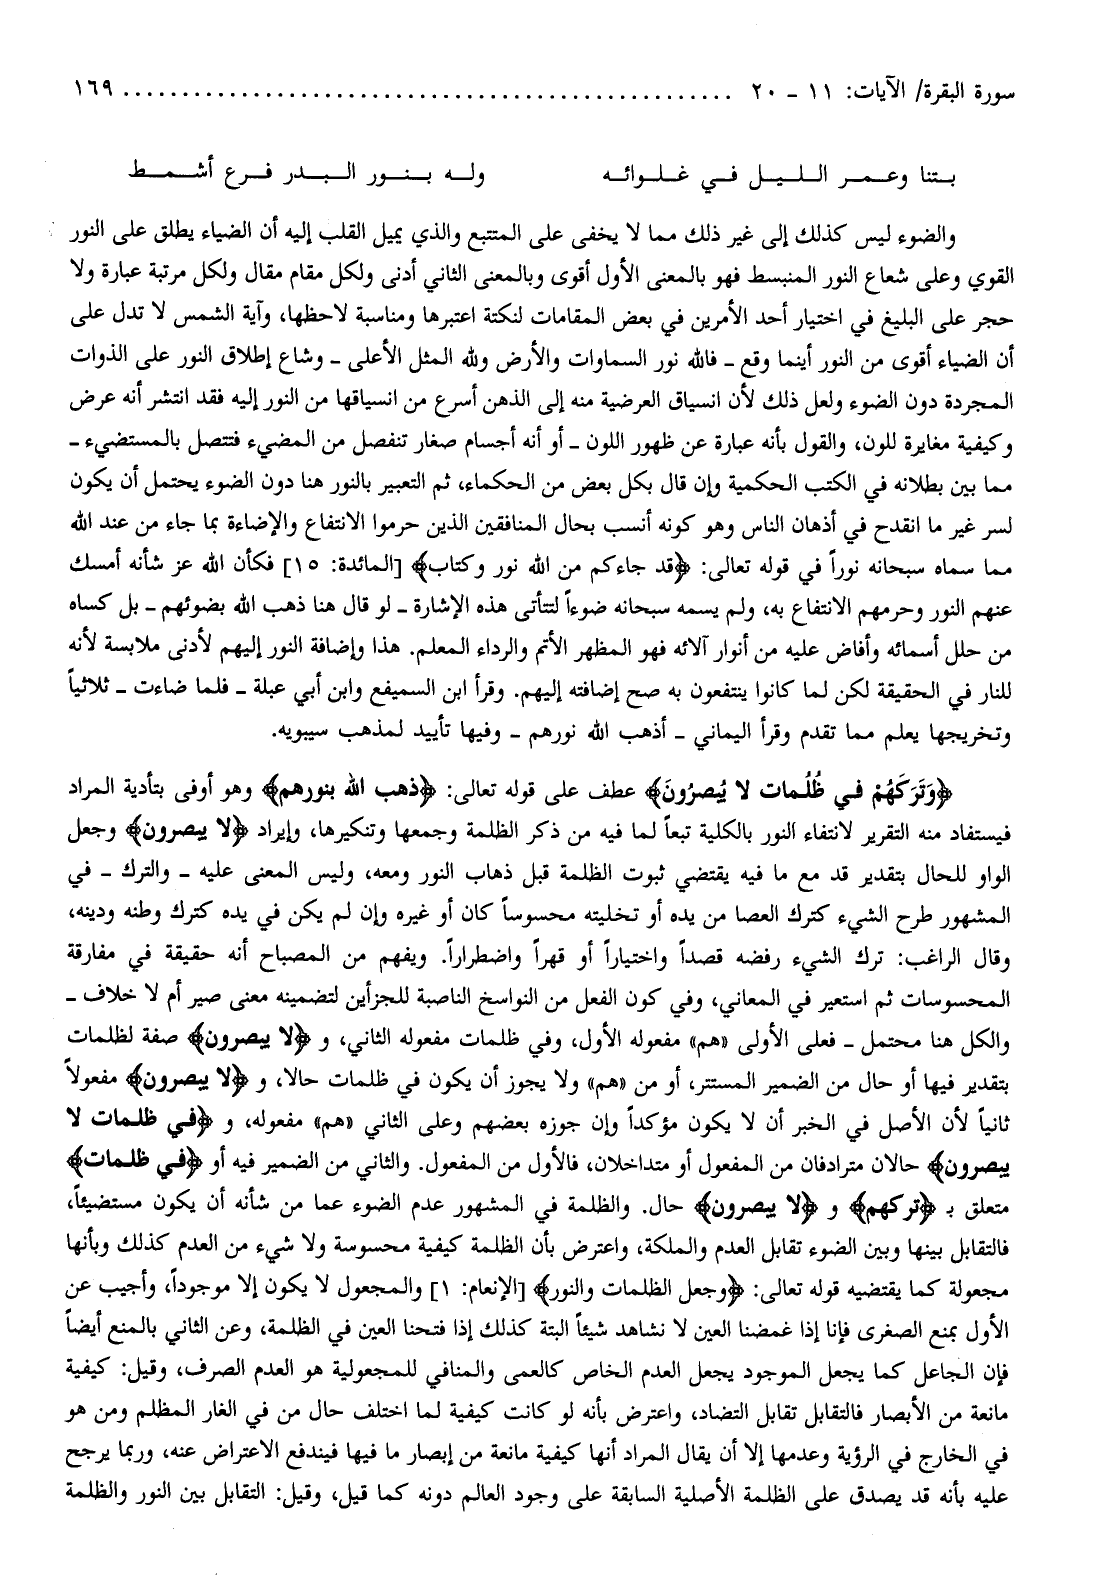 سورة البقرة/ الآيات: ١١ ـ ٢٠ ................................................ ١٦٩
بـتنا وعـمر الـليـل فـي غـلـوائـه ولـه بـنـور الـبـدر فـرع أشـمـط
والضوء ليس كذلك إلى غير ذلك مما لا يخفى على المتتبع والذي يميل القلب إليه أن الضياء يطلق على النور
القوي وعلى شعاع النور المنبسط فهو بالمعنى الأول أقوى وبالمعنى الثاني أدنى ولكل مقام مقال ولكل مرتبة عبارة ولا
حجر على البليغ في اختيار أحد الأمرين في بعض المقامات لنكتة اعتبرها ومناسبة لاحظها، وآية الشمس لا تدل على
أن الضياء أقوى من النور أينما وقع ـ فالله نور السماوات والأرض ولله المثل الأعلى ـ وشاع إطلاق النور على الذوات
المجردة دون الضوء ولعل ذلك لأن انسياق العرضية منه إلى الذهن أسرع من انسياقها من النور إليه فقد انتشر أنه عرض
وكيفية مغايرة للون، والقول بأنه عبارة عن ظهور اللون ـ أو أنه أجسام صغار تنفصل من المضيء فتتصل بالمستضيء ـ
مما بين بطلانه في الكتب الحكمية وإن قال بكل بعض من الحكماء، ثم التعبير بالنور هنا دون الضوء يحتمل أن يكون
لسر غير ما انقدح في أذهان الناس وهو كونه أنسب بحال المنافقين الذين حرموا الانتفاع والإضاءة بما جاء من عند الله
مما سماه سبحانه نوراً في قوله تعالى: ﴿قد جاءكم من الله نور وكتاب﴾ [المائدة: ١٥] فكأن الله عز شأنه أمسك
عنهم النور وحرمهم الانتفاع به، ولم يسمه سبحانه ضوءاً لتتأتى هذه الإشارة ـ لو قال هنا ذهب الله بضوئهم ـ بل كساه
من حلل أسمائه وأفاض عليه من أنوار آلائه فهو المظهر الأتم والرداء المعلم. هذا وإضافة النور إليهم لأدنى ملابسة لأنه
للنار في الحقيقة لكن لما كانوا ينتفعون به صح إضافته إليهم. وقرأ ابن السميفع وابن أبي عبلة ـ فلما ضاءت ـ ثلاثياً
وتخريجها يعلم مما تقدم وقرأ اليماني ـ أذهب الله نورهم ـ وفيها تأييد لمذهب سيبويه.
﴿وَتَرَكَهُمْ في ظُلُمات لا يُبصرُونَ﴾ عطف على قوله تعالى: ﴿ذهب الله بنورهم﴾ وهو أوفى بتأدية المراد
فيستفاد منه التقرير لانتفاء النور بالكلية تبعاً لما فيه من ذكر الظلمة وجمعها وتنكيرها، وإيراد ﴿لا يبصرون﴾ وجعل
الواو للحال بتقدير قد مع ما فيه يقتضي ثبوت الظلمة قبل ذهاب النور ومعه، وليس المعنى عليه ـ والترك ـ في
المشهور طرح الشيء كترك العصا من يده أو تخليته محسوساً كان أو غيره وإن لم يكن في يده كترك وطنه ودينه،
وقال الراغب: ترك الشيء رفضه قصداً واختياراً أو قهراً واضطراراً. ويفهم من المصباح أنه حقيقة في مفارقة
المحسوسات ثم استعير في المعاني، وفي كون الفعل من النواسخ الناصبة للجزأين لتضمينه معنى صير أم لا خلاف ـ
والكل هنا محتمل ـ فعلى الأولى «هم» مفعوله الأول، وفي ظلمات مفعوله الثاني، و ﴿لا يبصرون﴾ صفة لظلمات
بتقدير فيها أو حال من الضمير المستتر، أو من «هم» ولا يجوز أن يكون في ظلمات حالا، و ﴿لا يبصرون﴾ مفعولاً
ثانياً لأن الأصل في الخبر أن لا يكون مؤكداً وإن جوزه بعضهم وعلى الثاني «هم» مفعوله، و ﴿في ظلمات لا
يبصرون﴾ حالان مترادفان من المفعول أو متداخلان، فالأول من المفعول. والثاني من الضمير فيه أو ﴿في ظلمات﴾
متعلق بـ ﴿تركهم﴾ و ﴿لا يبصرون﴾ حال. والظلمة في المشهور عدم الضوء عما من شأنه أن يكون مستضيئاً،
فالتقابل بينها وبين الضوء تقابل العدم والملكة، واعترض بأن الظلمة كيفية محسوسة ولا شيء من العدم كذلك وبأنها
مجعولة كما يقتضيه قوله تعالى: ﴿وجعل الظلمات والنور﴾ [الإنعام: ١] والمجعول لا يكون إلا موجوداً، وأجيب عن
الأول بمنع الصغرى فإنا إذا غمضنا العين لا نشاهد شيئاً البتة كذلك إذا فتحنا العين في الظلمة، وعن الثاني بالمنع أيضاً
فإن الجاعل كما يجعل الموجود يجعل العدم الخاص كالعمى والمنافي للمجعولية هو العدم الصرف، وقيل: كيفية
مانعة من الأبصار فالتقابل تقابل التضاد، واعترض بأنه لو كانت كيفية لما اختلف حال من في الغار المظلم ومن هو
في الخارج في الرؤية وعدمها إلا أن يقال المراد أنها كيفية مانعة من إبصار ما فيها فيندفع الاعتراض عنه، وربما يرجح
عليه بأنه قد يصدق على الظلمة الأصلية السابقة على وجود العالم دونه كما قيل، وقيل: التقابل بين النور والظلمة